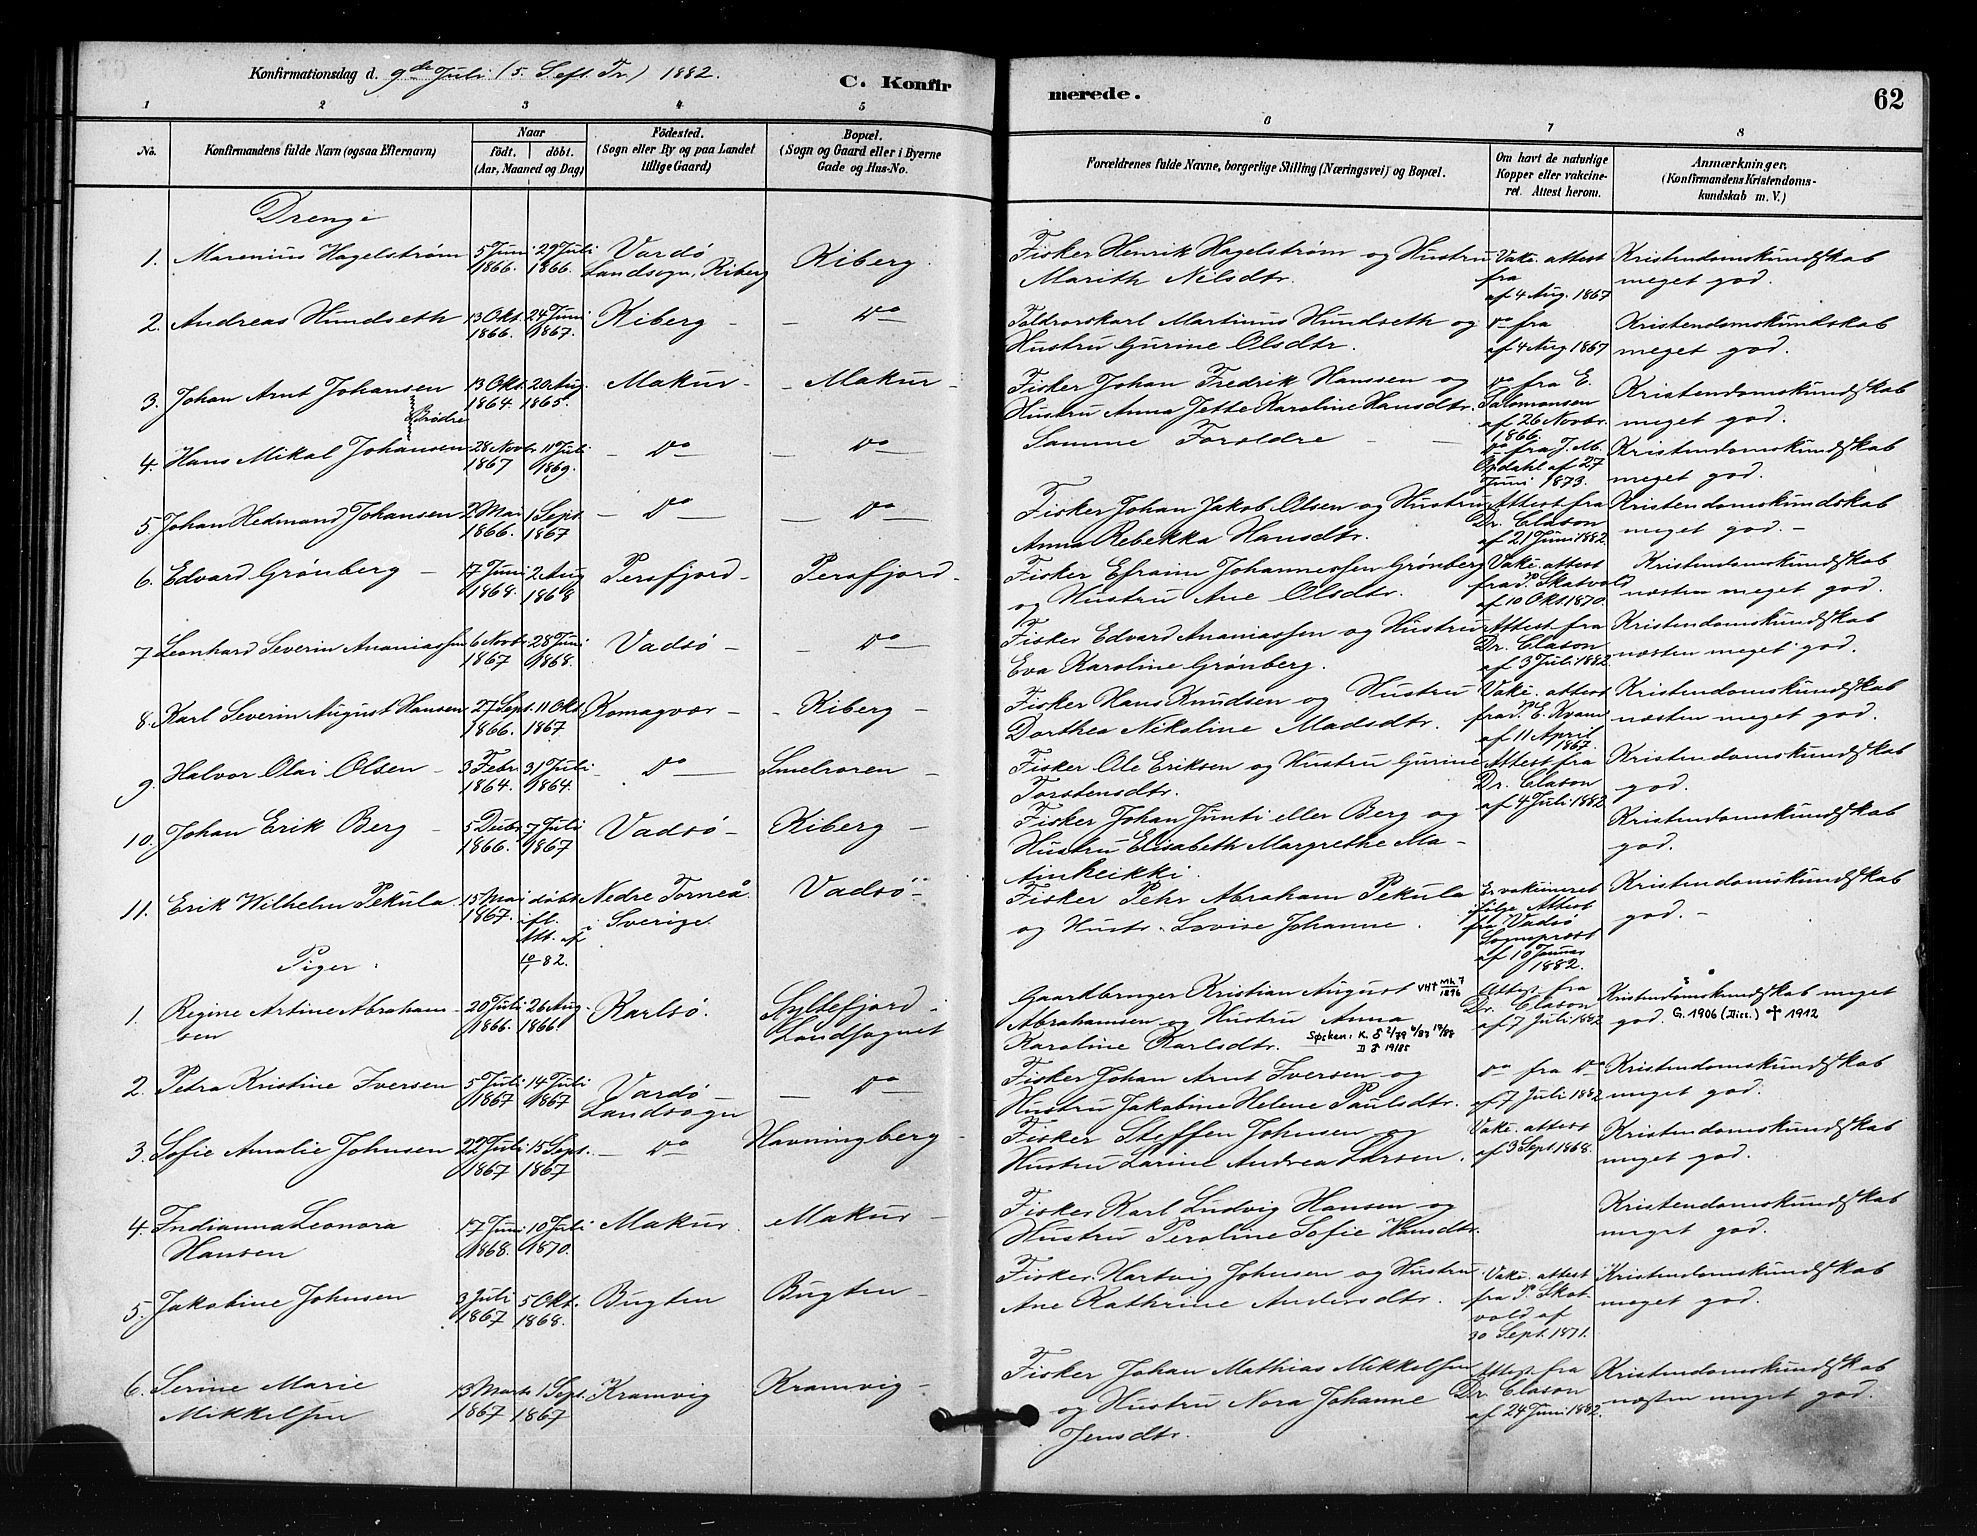 Konfirmationsdag d. 9de Juli (5. S. eft. Tr.) 1882.
C. Konfirmerede.
62
1 2 3 4 5 6 7 8
No.
Konfirmandens fulde Navn (ogsaa Efternavn)
Naar
födt. | döbt.
(Aar, Maaned og Dag)
Födested.
(Sogn eller By og paa Landet
tillige Gaard)
Bopæl.
(Sogn og Gaard eller i Byerne
Gade og Hus-No.
Forældrenes fulde Navne, borgerlige Stilling (Næringsvei) og Bopæl.
Om havt de naturlige
Kopper eller vakcine-
ret. Attest herom.
Anmærkninger.
(Konfirmandens Kristendoms-
kundskab m. V.)
Drenge
1. Marenius Hagelstrøm 5 Juni 1866. 29 Juli 1866. Vardö Landsogn, Kiberg Kiberg. Fisker Henrik Hagelstrøm og Hustru Marith Nilsdtr. Vakc. attest fra af 4 Aug. 1867 Kristendomskundskab meget god.
2. Andreas Hundseth 13 Okt. 1866. 24 Juni 1867. Kiberg – – Do Toldrorskarl Martinus Hundseth og Hustru Gurine Olsdtr. Do fra af 4 Aug 1867 Kristendomskundskab meget god.
3. Johan Arnt Johansen 13 Okt. 1864. 20 Aug. 1865. Makur – – Makur – Fisker Johan Fredrik Hanssen og Hustru Anna Jette Karoline Hansdtr. Do fra E. Salomonsen af 26 Novbr. 1866. Kristendomskundskab meget god.
Brødre
4. Hans Mikal Johansen 28 Novbr 1867 11 Juli 1869. – Do – – Do Samme Foreldre – – Do fra J. M. Opdahl af 27 Juni 1873. Kristendomskundskab meget god.
5. Johan Hedmand Johansen 2 Mai 1866. 1 Sept. 1867 – Do – – Do – Fisker Johan Jakob Olsen og Hustru Anna Rebekka Hansdtr. Attest fra Dr. Clason af 21 Juni 1882 Kristendomskundskab meget god. –
6. Edvard Grönberg – 17 Juni 1868. 2 Aug 1868 Persfjord – Persfjord – Fisker Efraim Johannessen Grönberg og Hustru Ane Olsdtr. Vakc. attest fra P. Skatvold af 10 Okt 1870. Kristendomskundskab næsten meget god.
7. Leonhard Severin Ananiassen 6 Novbr 1867 28 Juni 1868. Vadsö – – Do – Fisker Edvard Ananiassen og Hustru Eva Karoline Grönberg. Attest fra Dr. Clason af 3 Juli 1882 Kristendomskundskab næsten meget god.
8. Karl Severin August Hansen 27 Sept. 1866. 11 Okt. 1867 Komagvær – – Kiberg – Fisker Hans Knudsen og Hustru Dorthea Nikoline Madsdtr. Vakc. attest fra P. E. Kvam af 11 April 1867. Kristendomskundskab næsten meget god.
9. Halvor Olai Olsen – 3 Febr 1864. 31 Juli 1864. – Do – Smelroren – Fisker Ole Eriksen og Hustru Gurine Torstensdtr. Attest fra Dr. Clason af 4 Juli 1882 Kristendomskundskab god.
10. Johan Erik Berg – 5 Decbr 1866. 7 Juli 1867 Vadsö – Kiberg – Fisker Johan Junti eller Berg og Hustru Elisabeth Margrethe Ma- Kristendomskundskab god.
11. Erik Wilhelm Pekula 15 Mai 1867. döbt ifl. Att. af 10/1 82. Nedre Torneå i Sverige. Vadsö – Fisker Pehr Abraham Pekula og Hustr. Lovise Johanne. Er vakcineret ifølge Attest fra Vadsö Sogneprest af 10 Januar 1882. Kristendomskundskab god. –
Piger.
1. Regine Artine Abrahamsen 20 Juli 1866. 26 Aug. 1866. Karlsö. Syltefjord – Landsognet Gaardbruger Kristian August Abrahamsen og Hustru Anna Karoline Karlsdtr. Attest fra Dr. Clason af 7 Juli 1882 Kristendomskundskab meget god. G. 1906 (Diss.) ✝ 1912
VHT Mh 7 1896
Søsken: K. ♂ 2/79 6/83 19/88
D ♂ 19/85
2. Petra Kristine Iversen 5 Juli 1867 14 Juli 1867 Vardö – Landsogn – Do – Fisker Johan Arnt Iversen og Hustru Jakobine Helene Paulsdtr. Do fra Do af 7 Juli 1882 Kristendomskundskab meget god.
3. Sofie Amalie Johnsen 22 Juli 1867 15 Sept. 1867 – Do Havningberg – Fisker Steffen Johnsen og Hustru Larine Andrea Larsen. Vakc. attest af 3 Sept 1868. Kristendomskundskab meget god.
4. Indianna Leonora Hansen 17 Juni 1868. 10 Juli 1870. Makur. Makur – Fisker Karl Ludvig Hansen og Hustru Peroline Sofie Hansdtr. Kristendomskundskab meget god.
5. Jakobine Johnsen 3 Juli 1867 5 Okt. 1868. Bugten Bugten Fisker Hartvig Johnsen og Hustru Ane Kathrine Andersdtr. Vakc. attest fra P. Skatvold af 30 Sept. 1871. Kristendomskundskab meget god.
6. Serine Marie Mikkelsen 13 Marts 1867 1 Sept. 1867 Kramvig Kramvig – Fisker Johan Mathias Mikkelsen og Hustru Nora Johanne Jensdtr. Attest fra Dr. Clason af 24 Juni 1882. Kristendomskundskab næsten meget god.